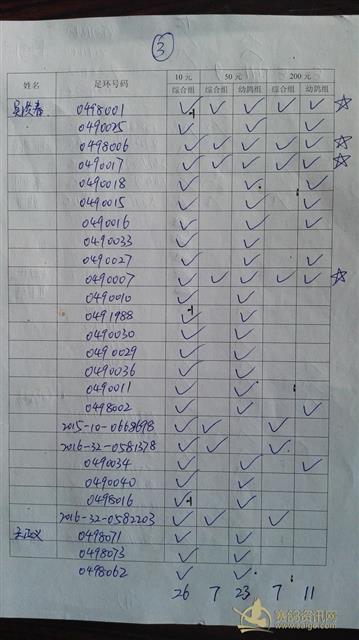 ③
姓名 足环号码 10元 50元 200元
综合组 综合组 幼鸽组 综合组 幼鸽组
0498001 ✓ ✓ ✓ ✓ ✓ ☆
0490025 ✓ ✓ ✓
0498006 ✓ ✓ ✓ ✓ ✓ ☆
0490017 ✓ ✓ ✓ ✓ ✓ ☆
0490018 ✓ ✓ ✓
0490015 ✓ ✓ ✓
0490016 ✓ ✓ ✓
0490033 ✓ ✓
0490027 ✓ ✓ ✓
0490007 ✓ ✓ ✓ ✓ ✓ ☆
0490010 ✓ ✓
0491988 ✓ ✓
0490030 ✓ ✓
0490029 ✓ ✓
0490036 ✓ ✓
0490011 ✓ ✓
0498002 ✓ ✓ ✓
2015-10-0668698 ✓ ✓ ✓
2016-32-0581378 ✓ ✓ ✓
0490034 ✓ ✓ ✓
0490040 ✓ ✓
0498016 ✓ ✓
2016-32-0582203 ✓ ✓ ✓
0498071 ✓ ✓
0498073 ✓ ✓
0498062 ✓ ✓
26 7 23 7 11
赛鸽资讯网
www.saige.com